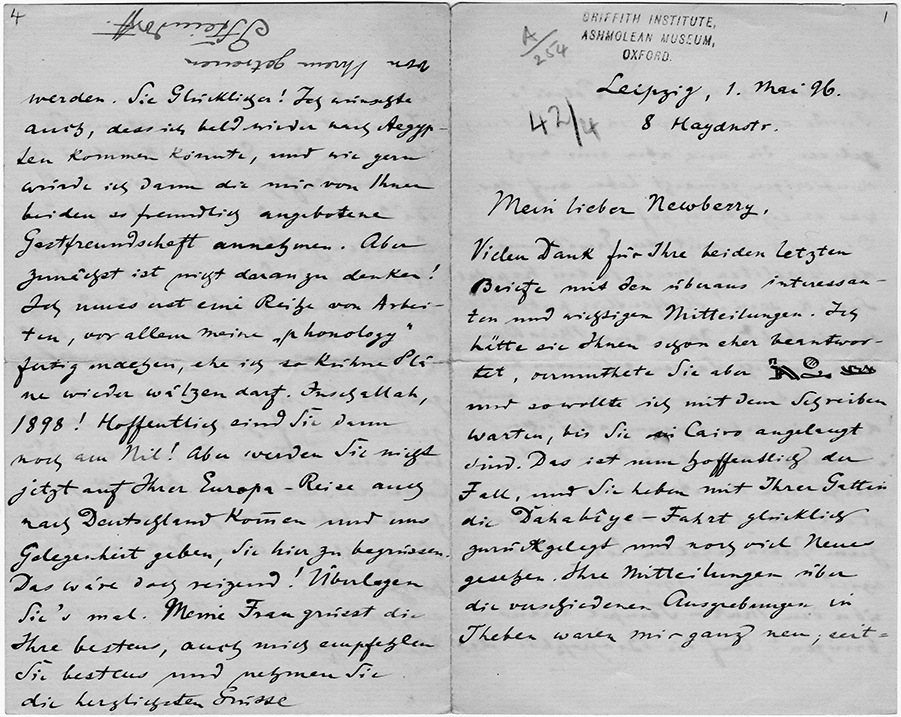 1
GRIFFITH INSTITUTE,
ASHMOLEAN MUSEUM,
OXFORD.
A/254
42/4
Leipzig, 1. Mai 96.
8 Haydnstr.
Mein lieber Newberry,
Vielen Dank für Ihre beiden letzten
Briefe mit den überaus interessan-
ten und wichtigen Mitteilungen. Ich
hätte sie Ihnen schon eher beantwor-
tet, vermuthete Sie aber
und so wollte ich mit dem Schreiben
warten, bis Sie in Cairo angelangt
sind. Das ist nun hoffentlich der
Fall, und Sie haben mit Ihrer Gattin
die Dahabîye-Fahrt glücklich
zurückgelegt und noch viel Neues
gesehen. Ihre Mitteilungen über
die verschiedenen Ausgrabungen in
Theben waren mir ganz neu; seit-
4
werden. Sie Glücklicher! Ich wünschte
auch, dass ich bald wieder nach Aegyp-
ten kommen könnte, und wie gern
würde ich dann die mir von Ihnen
beiden so freundlich angebotene
Gastfreundschaft annehmen. Aber
zunächst ist nicht daran zu denken!
Ich muss erst eine Reihe von Arbei-
ten, vor allem meine „phonology“
fertig machen, ehe ich so kühne Plä-
ne wieder wälzen darf. Inschallah,
1898! Hoffentlich sind Sie dann
noch am Nil! Aber werden Sie nicht
jetzt auf Ihrer Europa-Reise auch
nach Deutschland kom̄en und uns
Gelegenheit geben, Sie hier zu begrüssen.
Das wäre doch reizend! Überlegen
Sie's mal. Meine Frau grüsst die
Ihre bestens, auch mich empfehlen
Sie bestens und nehmen Sie
die herzlichsten Grüsse
von Ihrem getreuen
GSteindorff